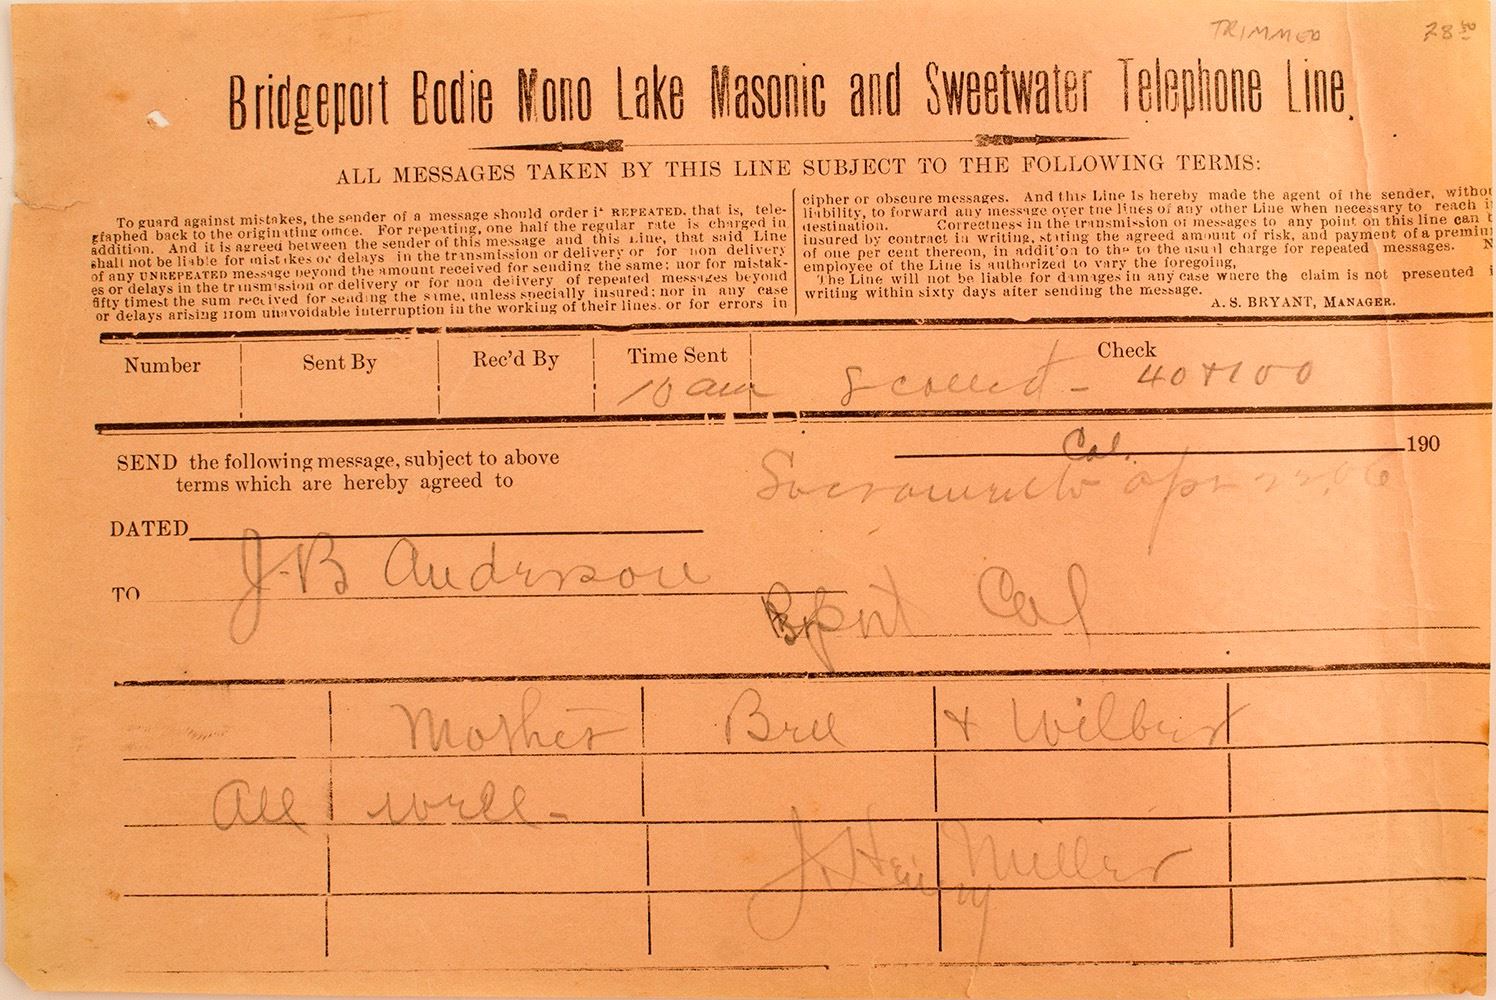 TRIMMED 28 50
Bridgeport Bodie Mono Lake Masonic and Sweetwater Telephone Line.
ALL MESSAGES TAKEN BY THIS LINE SUBJECT TO THE FOLLOWING TERMS:
To guard against mistakes, the sender of a message should order it REPEATED, that is, tele-
gfaphed back to the originating office. For repeating, one half the regular rate is charged in
addition. And it is agreed between the sender of this message and this Line, that said Line
shall not be liable for mistakes or delays in the transmission or delivery or for non delivery
of any UNREPEATED message beyond the amount received for sending the same; nor for mistak-
es or delays in the transmission or delivery or for non delivery of repeated messages beyond
fifty timest the sum received for sending the same, unless specially insured; nor in any case
or delays arising from unavoidable interruption in the working of their lines. or for errors in
cipher or obscure messages. And this Line is hereby made the agent of the sender, withou
liability, to forward any message over the lines of any other Line when necessary to reach i
destination. Correctness in the transmission of messages to any point on this line can b
insured by contract in writing, stating the agreed amount of risk, and payment of a premiu
of one per cent thereon, in addition to the to the usual charge for repeated messages. N
employee of the Line is authorized to vary the foregoing,
The Line will not be liable for damages in any case where the claim is not presented i
writing within sixty days after sending the message.
A. S. BRYANT, MANAGER.
Number Sent By Rec'd By Time Sent Check
10 am 8 collect - 40 + 100
SEND the following message, subject to above
terms which are hereby agreed to
Cal. 190
Sacramento apr 22, 06
DATED
TO J-B Anderson
Bpt Cal
Mother & Wilbur
All well -
J. Henry Miller